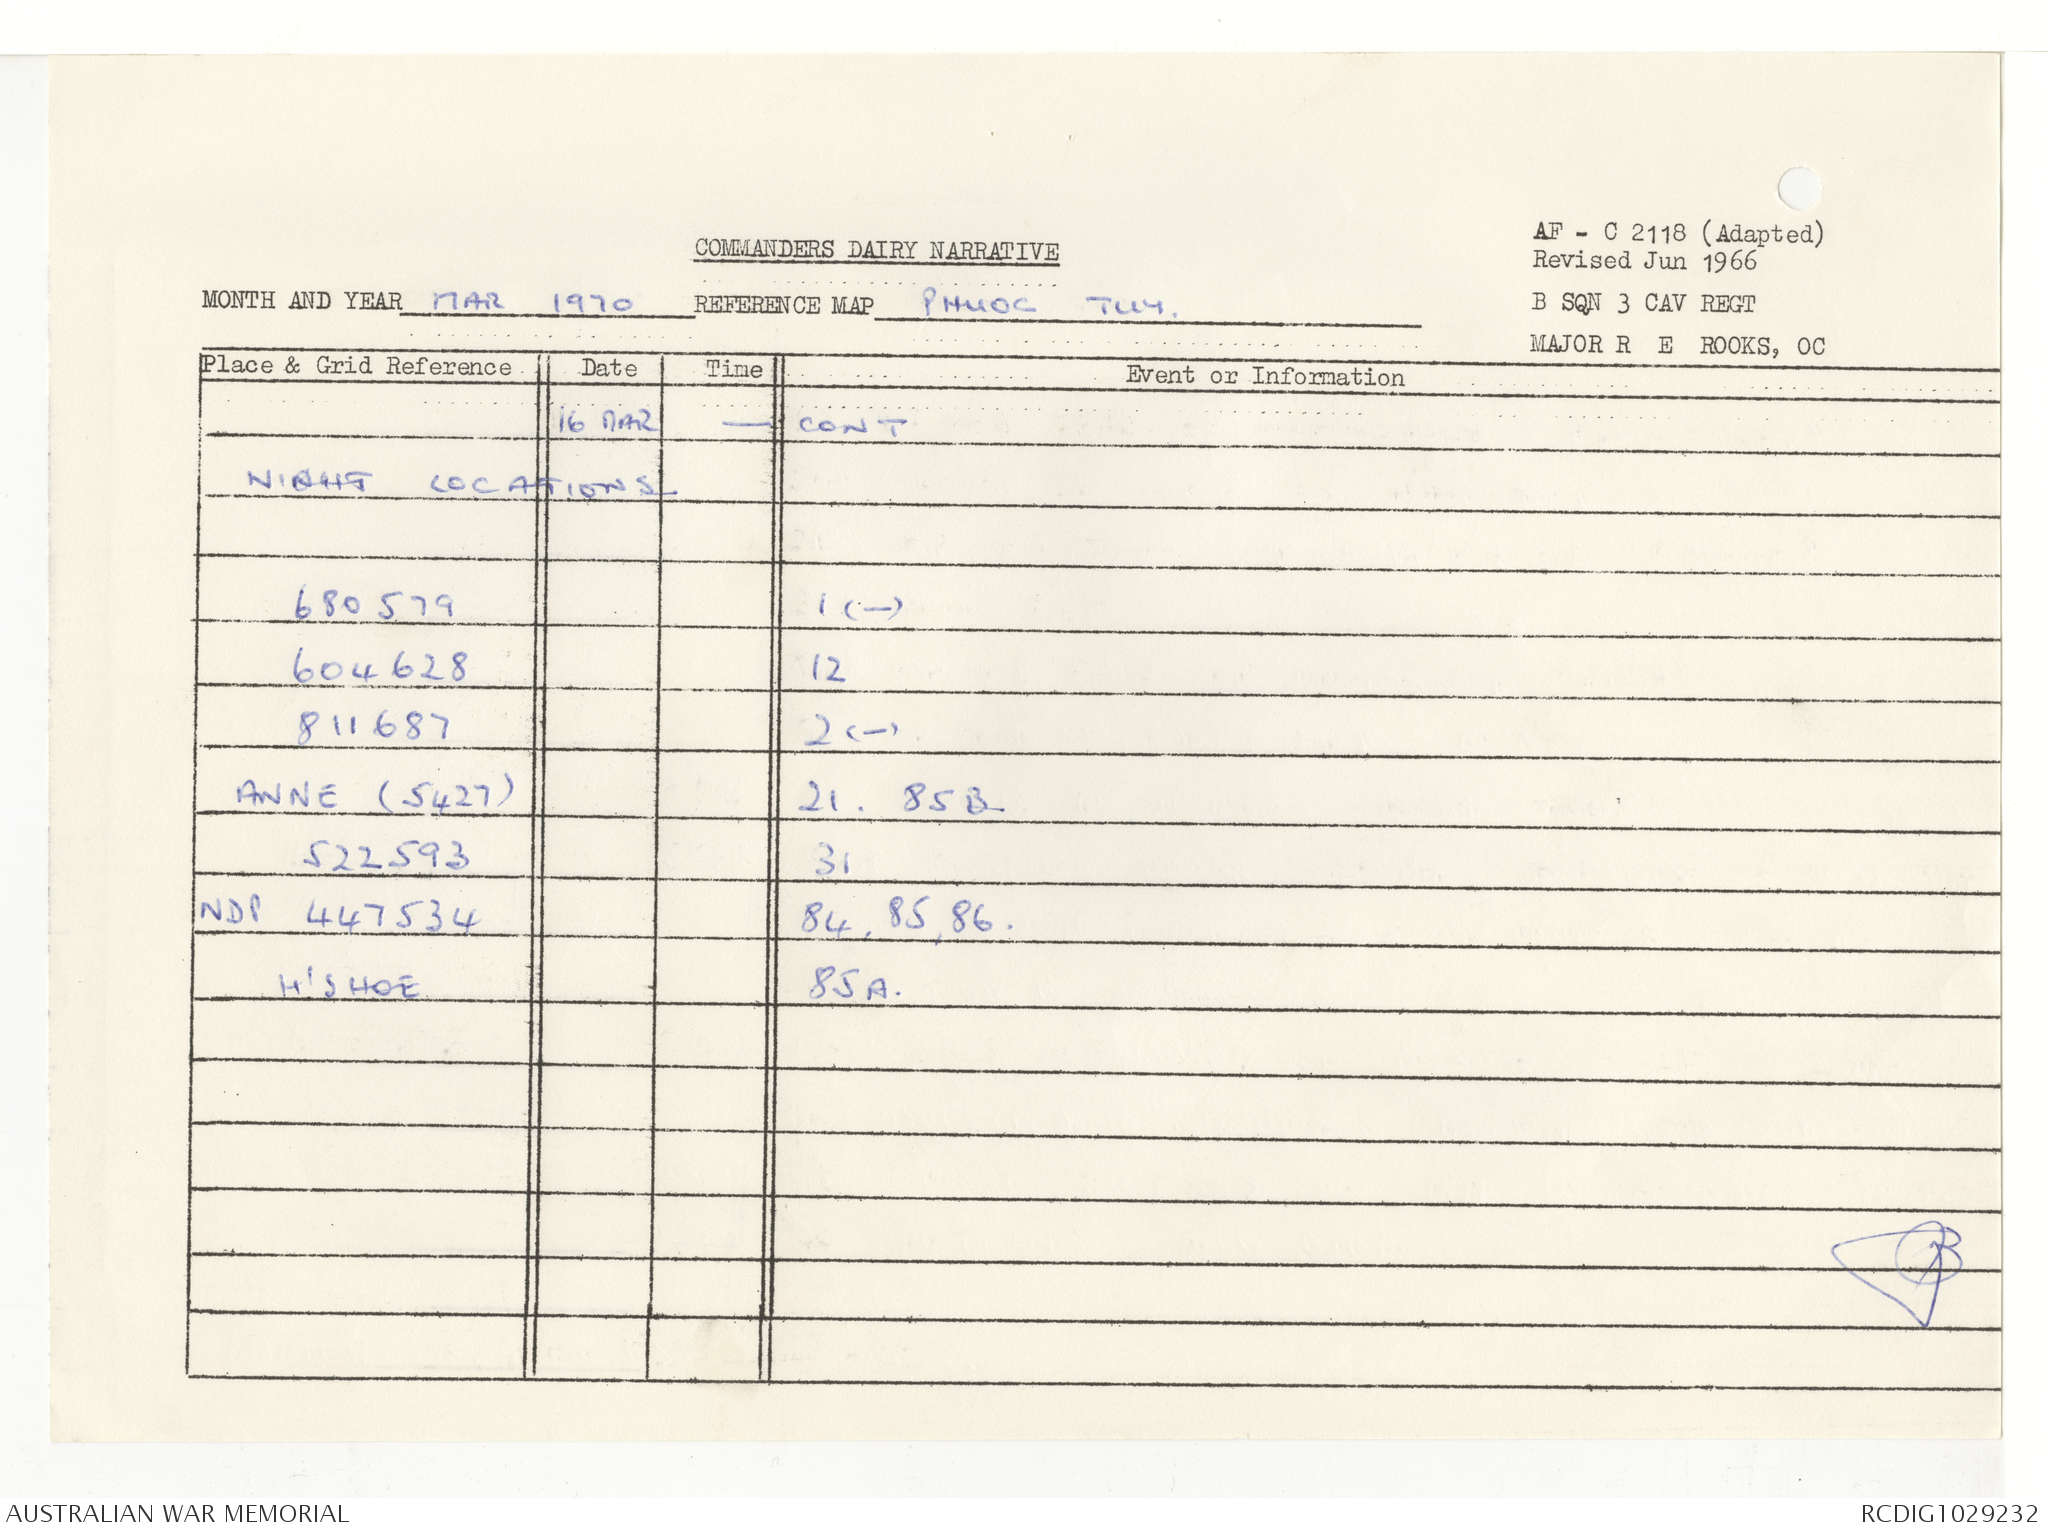 COMMANDERS DAIRY NARRATIVE
AF - C 2118 (Adapted)
Revised Jun 1966
MONTH AND YEAR MAR 1970 REFERENCE MAP PHUOC TUY.
B SQN 3 CAV REGT
MAJOR R E ROOKS, OC
Place & Grid Reference Date Time Event or Information
16 MAR — CONT
NIGHT LOCATIONS
680579 1 (—)
604628 12
811687 2 (—)
ANNE (5427) 21. 85B
522593 31
NDP 447534 84, 85, 86.
H'SHOE 85A.
AUSTRALIAN WAR MEMORIAL RCDIG1029232